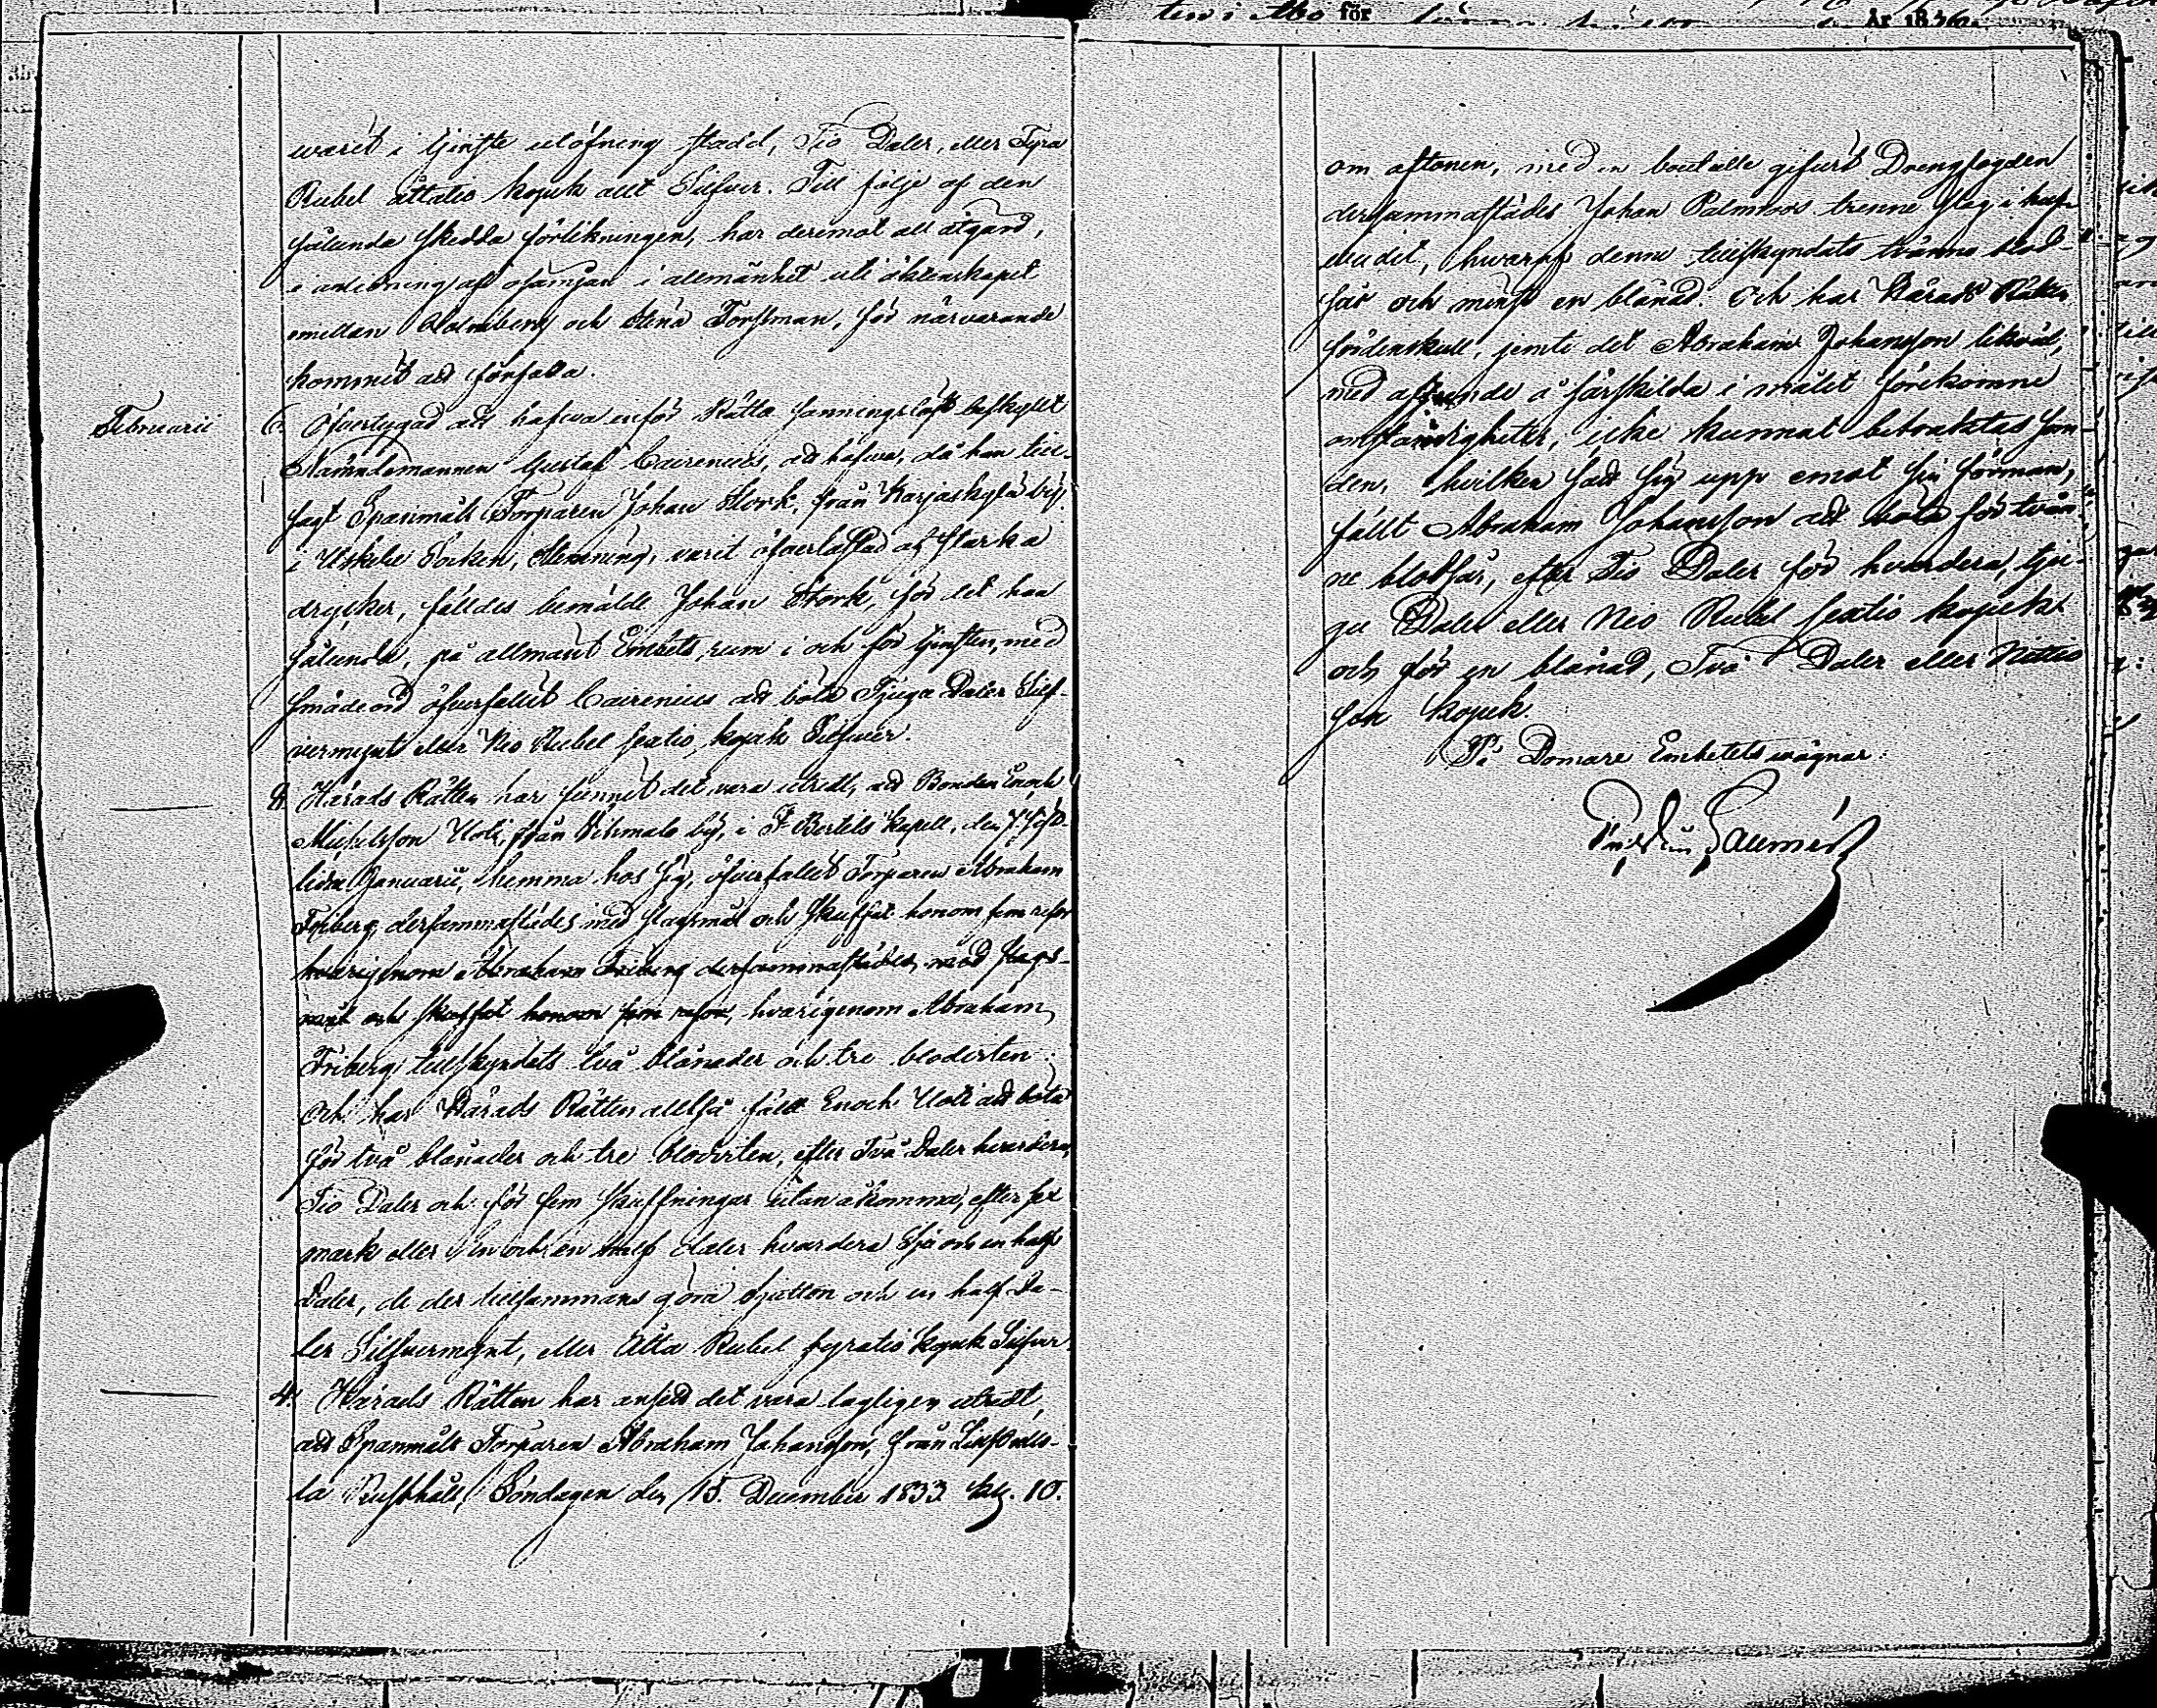 ten i Åbo för
År 1836.
warit i tjenste utöfning stadd, Tio Daler, eller Fyra
Rubel åttatio kopek allt Silfver. Till följe af den
sålunda skedda förlikningen, har deremot all åtgärd,
i anledning af osämjan i allmänhet uti äktenskapet
emellan Holmberg och Stina Forssman, för närvarande
kommit att förfalla.
Februarii
6. Öfvertygad att hafva inför Rätta sanningslöst beskyllt
Nämndemannen Gustaf Cairenius, att hafva, då han till-
sagt Spanmåls Torparen Johan Stork, från Karjaskylä by,
i Uskela Socken, Stemning, varit öfverlastad af starka
drycker, fälldes bemälde Johan Stork, för det han
sålunda, på allmänt Embets rum i och för tjensten, med
smädeord öfverfallit Cairenius att böta Tjugu Daler Silf-
vermynt eller Nio Rubel sextio kopek Silfver.
8. Härads Rätten har funnit det vara utredt, att Bonden Enoch
Michelsson Uoti, från Vihmalo by, i St Bertils Kapell, den 7 sisst-
lidne Januarii, hemma hos sig, öfverfallit Torparen Abraham
Friberg dersammastädes med slagsmål och skuffat honom fem resor
hvarigenom Abraham Friberg dersammastädes, med slags-
mål och skuffat honom fem resor, hvarigenom Abraham
Friberg tillskyndats två blånader och tre blodviten:
Och har Härads Rätten alltså fällt Enoch Uoti att böta
för två blånader och tre blodviten, efter Två Daler hvardera,
Tio Daler och för fem skuffningar utan åkomma, efter sex
mark eller en och en half daler hvardera Sju och en half
Daler, de der tillsammans göra Sjutton och en half Da-
ler Silfvermynt, eller Åtta Rubel fyratio kopek Silfver.
4. Härads Rätten har ansett det vara lagligen utredt,
att Spanmåls Torparen Abraham Johansson, från
la Rusthåll, Söndagen den 15. December 1833 kl. 10.
om aftonen, med en boutaille gifvit Drengfogden
dersammastädes Johan Palmroos trenne slag i huf-
vudet, hvaraf denne tillskyndats tvänne blod-
sår och minst en blånad. Och har Härads Rätten
fördenskull, jemte det Abraham Johansson likväl,
med afseende å särskilda i målet förekomne
omständigheter, icke kunnat betraktas som
den, hvilken satt sig upp emot sin förman,
fällt Abraham Johansson att böta för tvän-
ne blodsår, efter Tio Daler för hvardera, tju-
gu Daler eller Nio Rubel sextio kopek
och för en blånad, Två Daler eller Nittio
sex kopek.
På Domare Embetets vägnar: